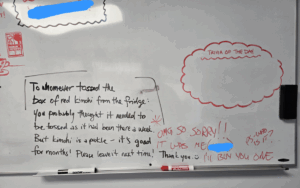 THINK OF THE DAY
To whomever tossed the
box of red kimchi from the fridge:
You probably thought it needed to
be tossed as it had been there a week.
But kimchi is a pickle - it's good
for months! Please leave it next time! Thank you
OMG SO SORRY!!
IT WAS ME
I'LL BUY YOU ONE